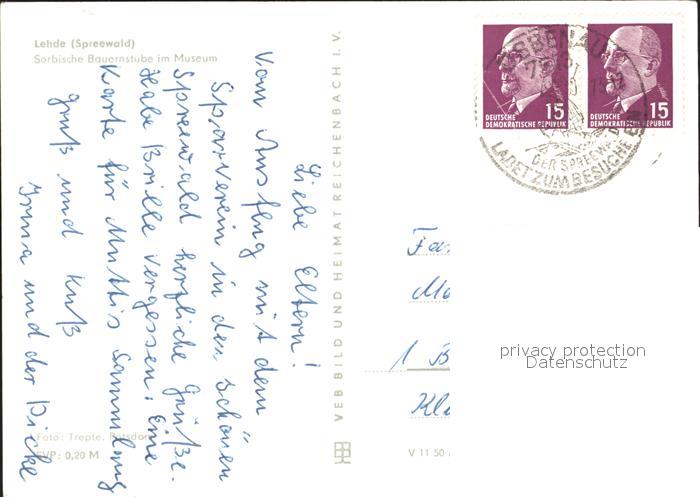 Lehde (Spreewald)
Sorbische Bauernstube im Museum
Liebe Eltern!
Vom Ausflug mit dem
Sparverein in den schönen
Spreewald herzliche Grüße.
Habe Brille vergessen. Eine
Karte für Muttis Sammlung
Gruß und Kuß
Irma und der Dicke
Foto: Trepte, Potsdam
EVP: 0,20 M
VEB BILD UND HEIMAT REICHENBACH I. V.
V 11 50
15
DEUTSCHE
DEMOKRATISCHE REPUBLIK
15
DEUTSCHE
DEMOKRATISCHE REPUBLIK
LÜBBENAU
DER SPREEWALD
LADET ZUM BESUCHE EIN
Fa
Mo
1 B
Kle
privacy protection
Datenschutz